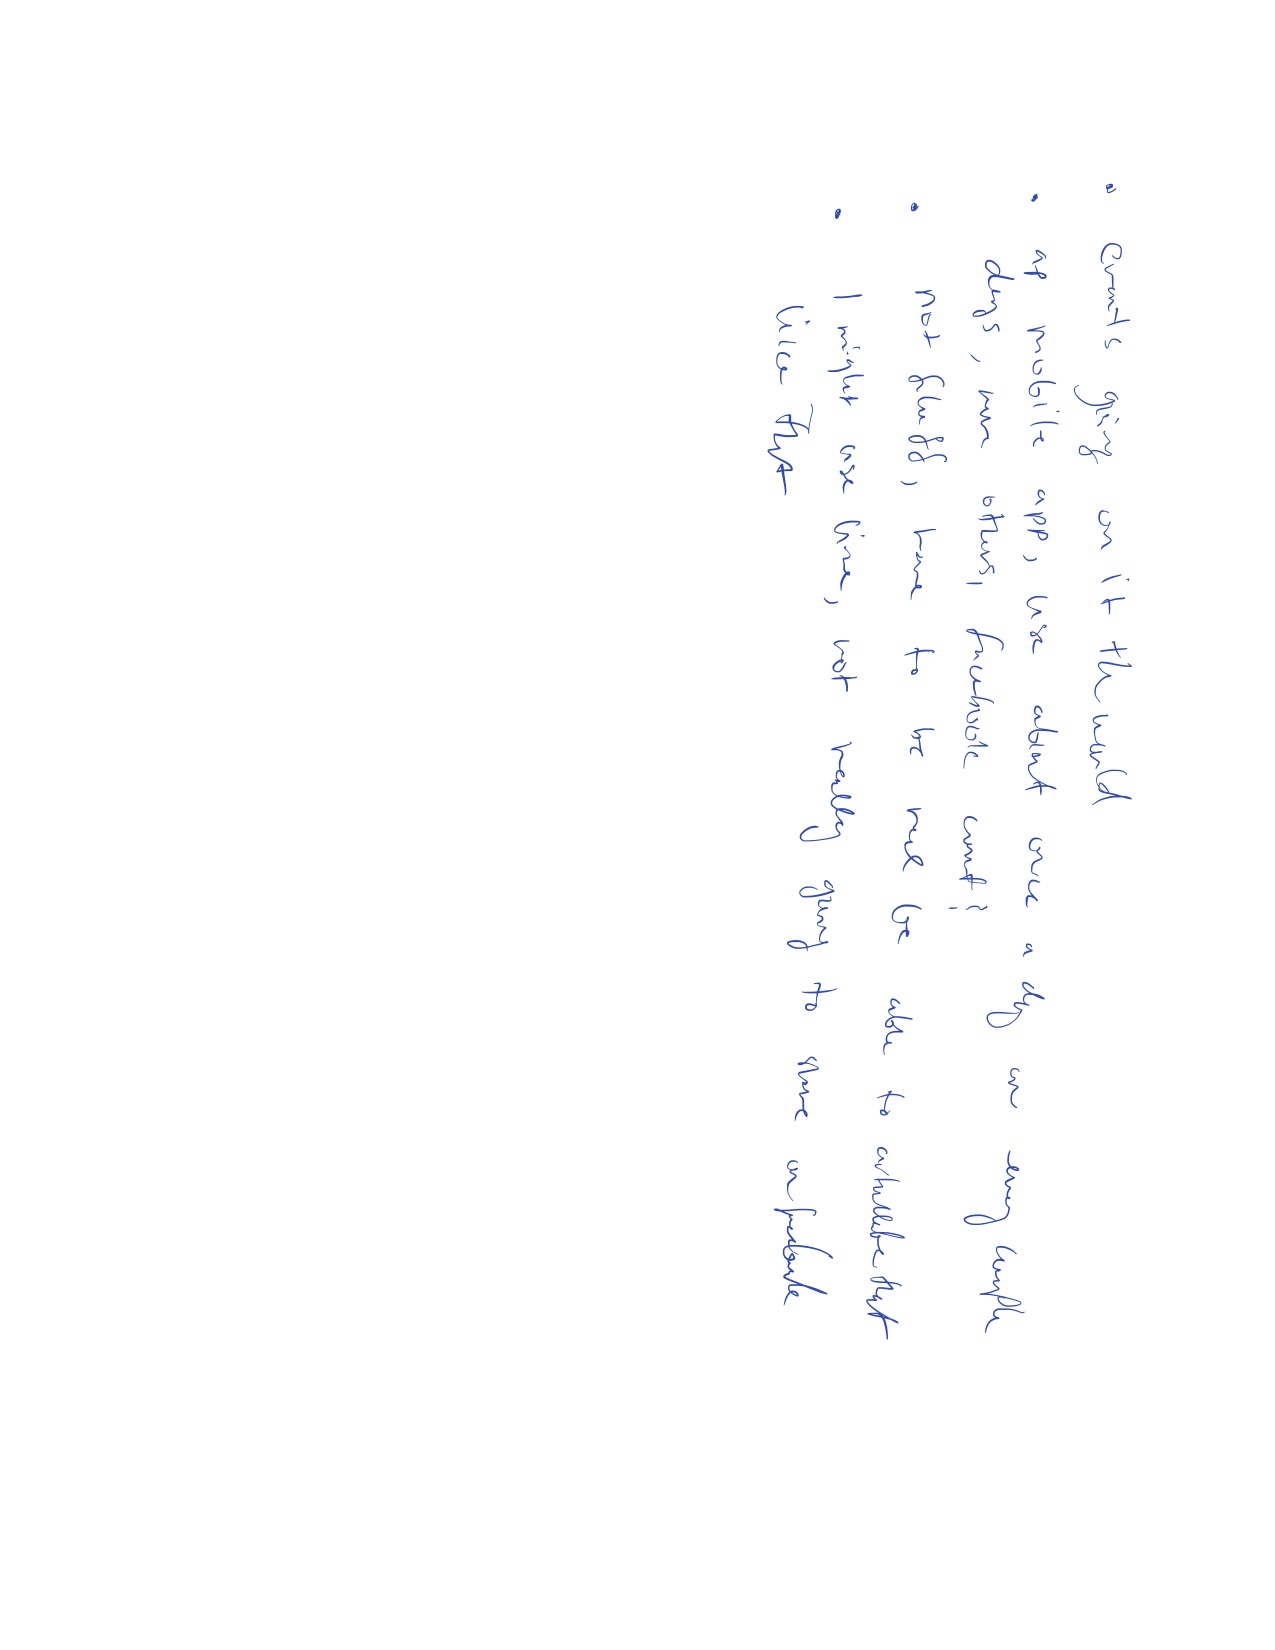 • Events going on in the world
• ap mobile app, use about once a day or every couple
days, run others, facebook count?
• not fluff, have to be real be able to that
• I might use line, not really going to share on facebook
like that